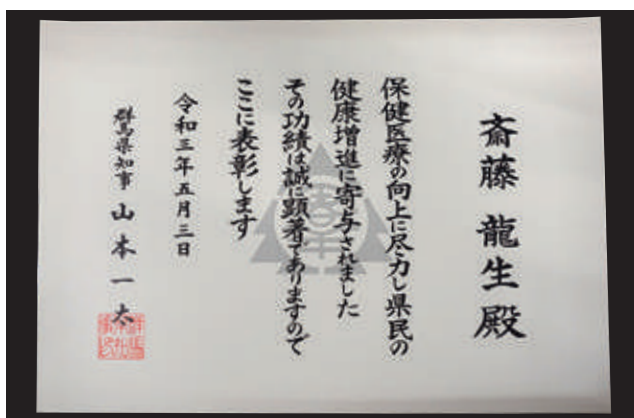 斎藤 龍生 殿
保健医療の向上に尽力し県民の
健康増進に寄与されました
その功績は誠に顕著でありますので
ここに表彰します
令和三年五月三日
群馬県知事 山本一太